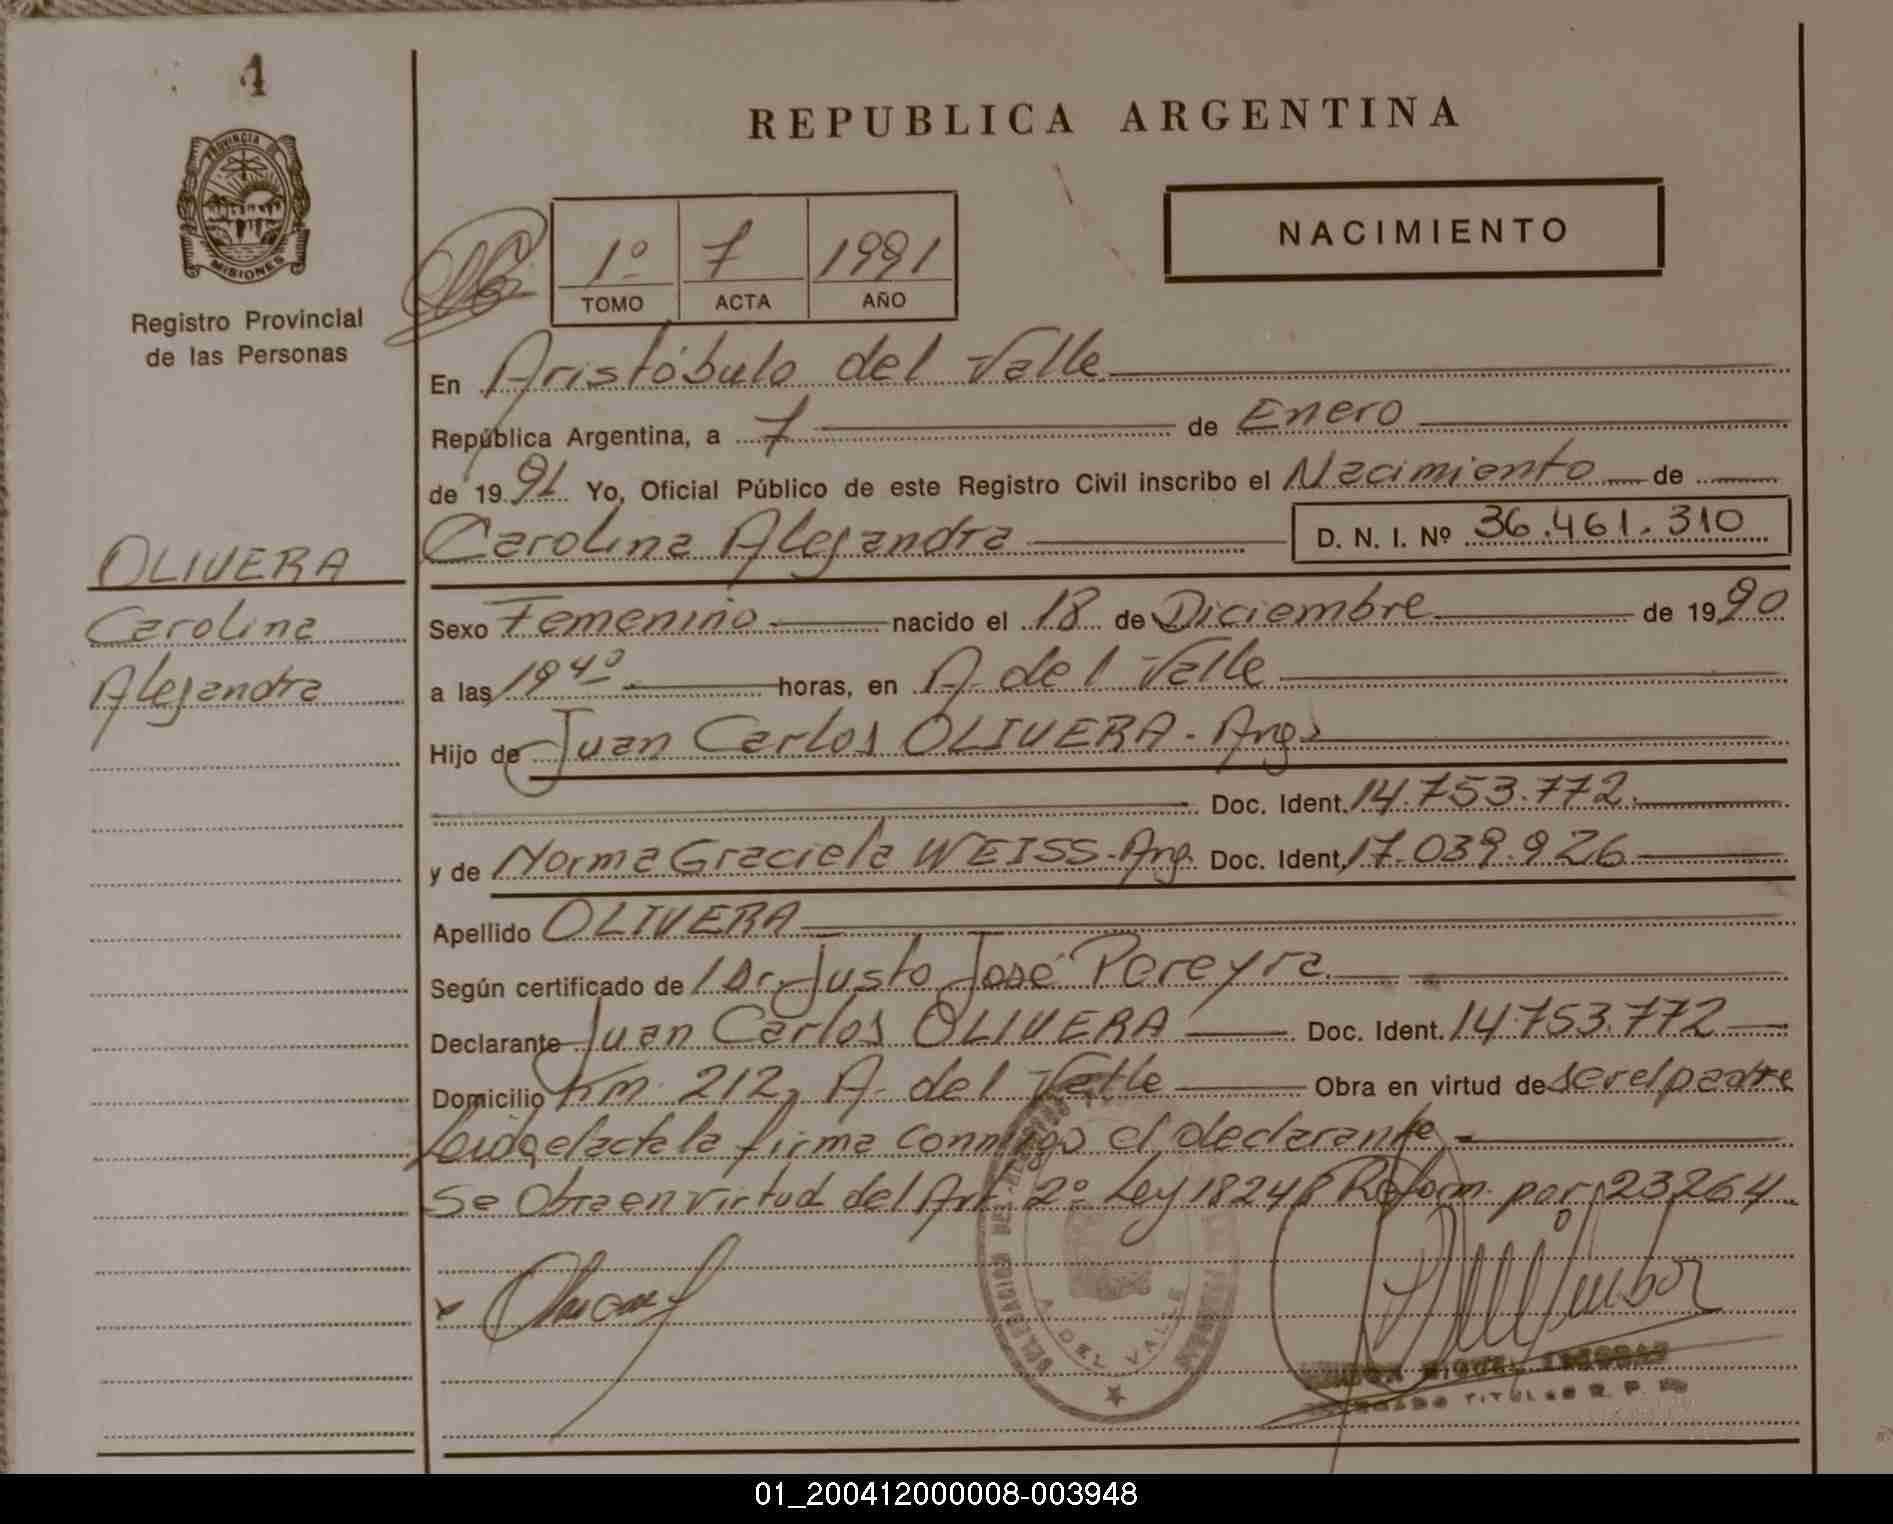 1
PROVINCIA DE
MISIONES
Registro Provincial
de las Personas
OLIVERA
Carolina
Alejandra
REPUBLICA ARGENTINA
NACIMIENTO
1º 7 1991
TOMO ACTA AÑO
En Aristóbulo del Valle
República Argentina, a 7 de Enero
de 1991 Yo, Oficial Público de este Registro Civil inscribo el Nacimiento de
Carolina Alejandra D. N. I. Nº 36.461.310
Sexo Femenino nacido el 18 de Diciembre de 1990
a las 19 40 horas, en A. del Valle
Hijo de Juan Carlos OLIVERA. Arg.
Doc. Ident. 14.753.772
y de Norma Graciela WEISS. Arg. Doc. Ident. 17.039.926
Apellido OLIVERA
Según certificado de Dr. Justo José Pereyra
Declarante Juan Carlos OLIVERA Doc. Ident. 14.753.772
Domicilio Km. 212, A. del Valle Obra en virtud de ser el padre
Leida el acta la firma conmigo el declarante
Se Obra en virtud del Art. 2º Ley 18248 Reform. por 23264
DELEGACION DEL
A. DEL VALLE
TITULAR R. P.
01_200412000008-003948